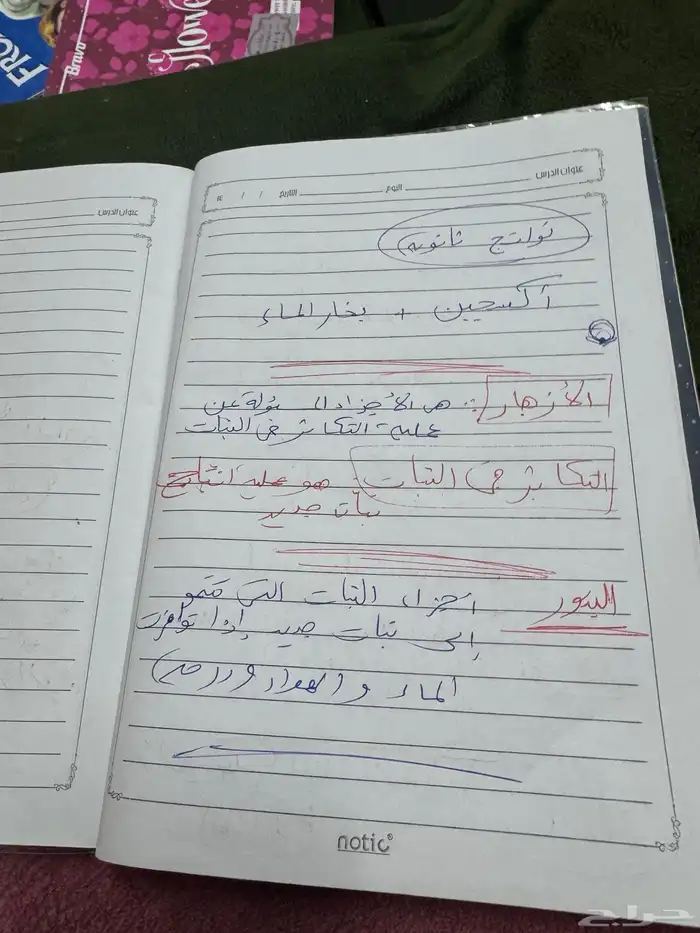 FRO
Bravo
Flowe
عنوان الدرس اليوم التاريخ / / ١٤
عنوان الدرس
نواتج ثانوية
أكسجين + بخار الماء
الأزهار : هي الأجزاء المسؤلة عن
عملية التكاثر في النبات
التكاثر في النبات هو عملية انتاج
نبات جديد
البذور أجزاء النبات التي تنمو
إلى نبات جديد إذا توافرت
الماء و الهواء و
notic
حراج